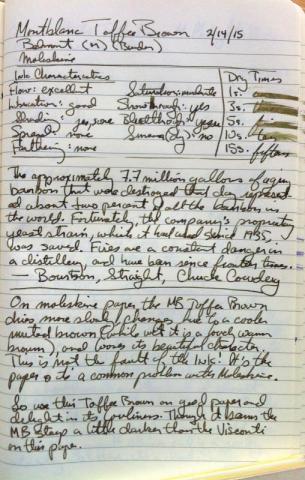 Montblanc Toffee Brown 2/14/15
Belmont (M) (Binder)
Moleskine
Ink Characteristics Dry Times
Flow: excellent Saturation: moderate 1s:
Lubrication: good Show through: yes 3s: three
Shading: yes, some Bleedthrough: yes 5s: five
Spread: none Smearing (dry): no 10s: ten
Feathering: none 15s: fifteen
The approximately 7.7 million gallons of aging
bourbon that was destroyed that day represent-
ed about two percent of all the bourbon in
the world. Fortunately, the company's proprietary
yeast strain, which it had used since 1935,
was saved. Fires are a constant danger in
a distillery, and have been since frontier times.
— Bourbon, Straight, Chuck Cowdery
On moleskine paper the MB Toffee Brown
dries more slowly, changes hue to a cooler
muted brown (while wet it is a lovely warm
brown), and loses its beautiful character.
This is not the fault of the ink! It's the
paper & it's a common problem with Moleskine.
So use this Toffee Brown on good paper and
delight in its loveliness. Though it seems the
MB Steep a little darker than the Visconti
on this paper.